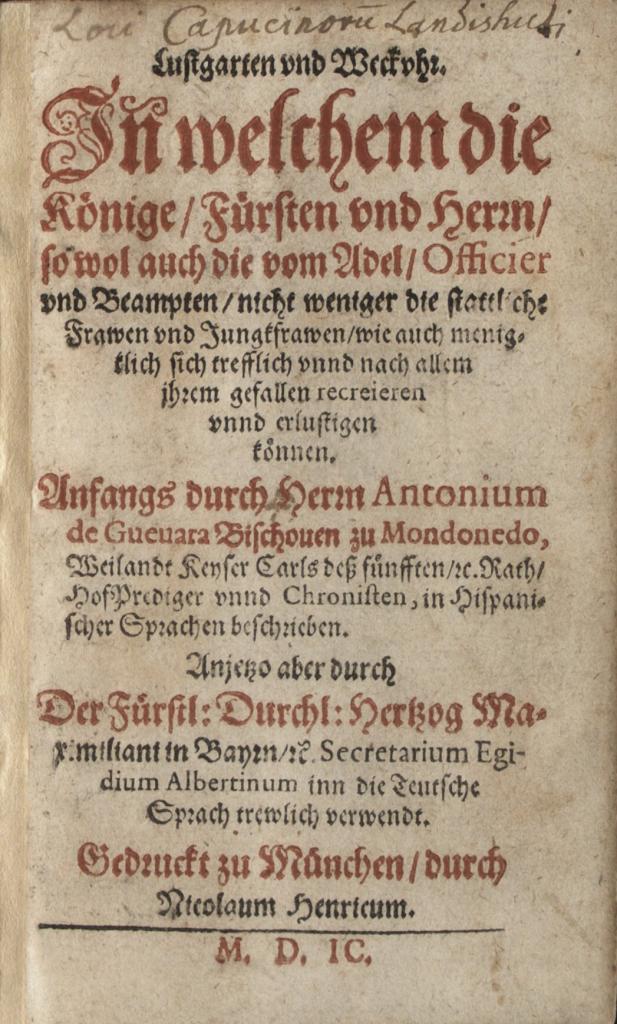 Loci Capucinorū Landishuti
Lustgarten vnd Weckvhr.
In welchem die
Könige/ Fürsten vnd Herrn/
so wol auch die vom Adel/ Officier
vnd Beampten/ nicht weniger die stattliche
Frawen vnd Jungkfrawen/ wie auch menig-
klich sich trefflich vnnd nach allem
jhrem gefallen recreieren
vnnd erlustigen
können.
Anfangs durch Herrn Antonium
de Gueuara Bischouen zu Mondonedo,
Weilandt Keyser Carls deß fünfften/ ꝛc. Rath/
HofPrediger vnnd Chronisten, in Hispani-
scher Sprachen beschrieben.
Anjetzo aber durch
Der Fürstl: Durchl: Hertzog Ma-
ximiliani in Bayrn/ ꝛc. Secretarium Egi-
dium Albertinum inn die Teutsche
Sprach trewlich verwendt.
Gedruckt zu München/ durch
Nicolaum Henricum.
M. D. IC.